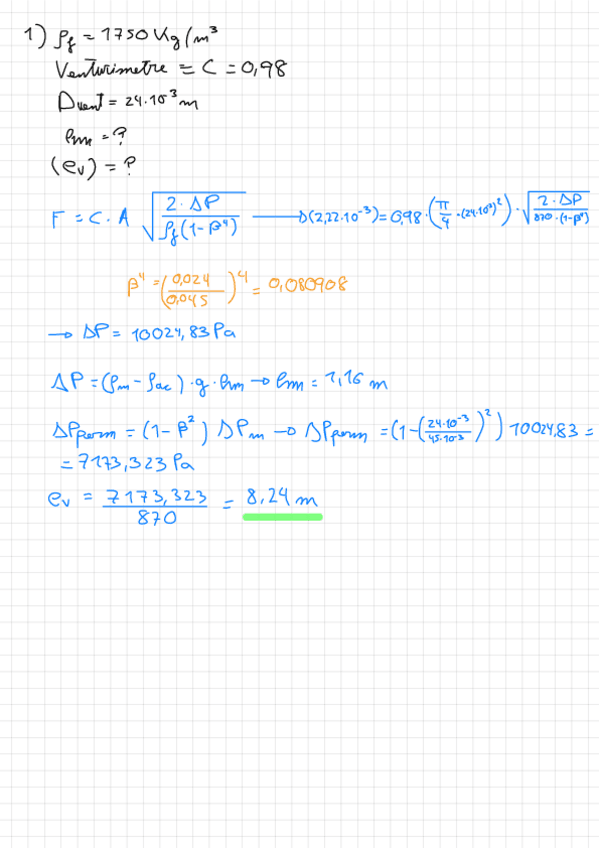 1) ρf = 1750 Kg/m³
Venturimetre = C = 0,98
Dvent = 24·10⁻³ m
hm = ?
(ev) = ?
F = C · A √(2 · ΔP / ρf(1-β⁴)) → (2,22·10⁻³) = 0,98 · (π/4 · (24·10⁻³)²) · √(2 · ΔP / 870 · (1-β⁴))
β⁴ = (0,024 / 0,045)⁴ = 0,080908
→ ΔP = 10024,83 Pa
ΔP = (ρm - ρac) · g · hm → hm = 1,16 m
ΔPperm = (1 - β²) ΔPm → ΔPperm = (1 - (24·10⁻³ / 45·10⁻³)²) 10024,83 =
= 7173,323 Pa
ev = 7173,323 / 870 = 8,24 m